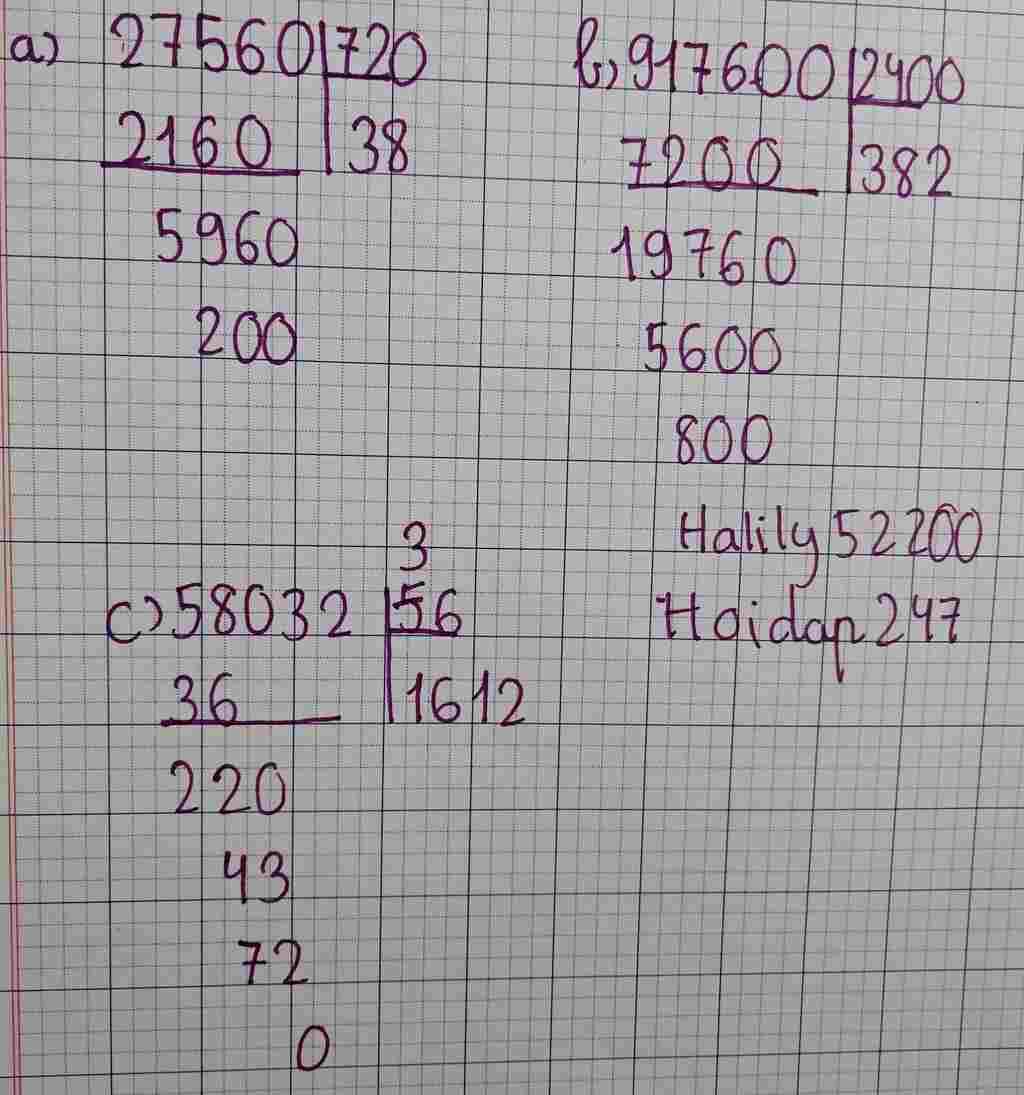 a) 27560 720
2160 38
5960
200
b, 917600 2400
7200 382
19760
5600
800
Halily52200
Hoidap247
3
c) 58032 56
36 1612
220
43
72
0